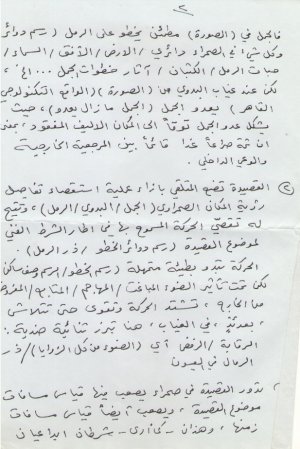 ٢
فالجمل في (الصورة) مطمئن يخطو على الرمل (رسم دوائر
وكل شيء في الصحراء دائري / الارض / الأفق / السماء /
حبات الرمل / الكثبان / آثار خطوات الجمل ... الخ) ،
لكن عند غياب البدوي من (الصورة) و (الواقع التكنولوجي
القاهر) يعدو الجمل (الجمل ما زال يعدو) ، حيث
يشكل عدو الجمل توقاً الى المكان الاليف المفقود ، بمعنى
ان ثمة صراعاً غدا قائماً بين المرجعية الخارجية
والوعي الداخلي .
٢ القصيدة تضع المتلقي بازاء عملية استقصاء تفاصيل
رؤية المكان الصحراوي (الجمل / البدوي / الرمل) ، وتتيح
له تقصي الحركة المسموح بها في اطار الشرط الفني
لموضوع القصيدة (رسم دوائر الخطو / ذر الرمل) .
الحركة تبدو بطيئة متمهلة (رسم بخطو / رسم
لكن تحت تأثير الضوء المباغت / المهاجم /
من الخارج ، تشتد الحركة وتقوى حتى تتلاشى
في الغياب ، هنا تبرز ثنائية ضدية :
الرقابة / الرفض أي (الضوء من كل الزوايا) / ذر
الرمال في العيون
تدور القصيدة في صحراء يصعب فيها قياس مسافات
موضوع القصيدة ، ويصعب أيضاً قياس مسافات
زمنها ، وهذان - شرطان ابداعيان